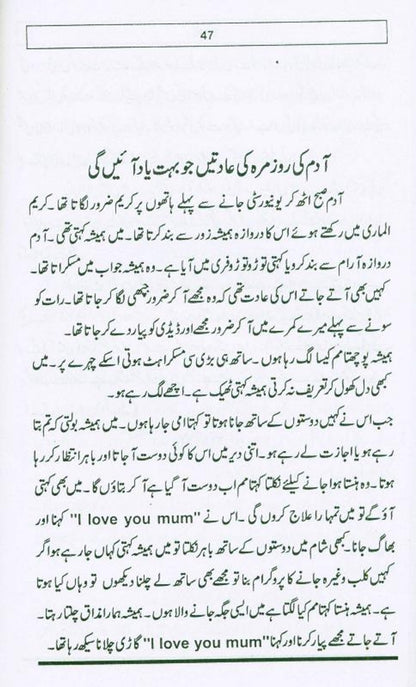 47
آدم کی روزمرہ کی عادتیں جو بہت یاد آئیں گی
آدم صبح اٹھ کر یونیورسٹی جانے سے پہلے ہاتھوں پر کریم ضرور لگاتا تھا۔ کریم
الماری میں رکھتے ہوئے اس کا دروازہ ہمیشہ زور سے بند کرتا تھا۔ میں ہمیشہ کہتی تھی۔ آدم
دروازہ آرام سے بند کرو یا کہتی توڑ دو توڑ دو فری میں آیا ہے۔ وہ ہمیشہ جواب میں مسکراتا تھا۔
کہیں بھی آتے جاتے اس کی عادت تھی کہ وہ مجھے آ کر ضرور چپھی لگا کر جاتا تھا۔ رات کو
سونے سے پہلے میرے کمرے میں آ کر ضرور مجھے اور ڈیڈی کو پیار دے کر جاتا تھا۔
ہمیشہ پوچھتا مم کیسا لگ رہا ہوں۔ ساتھ ہی بڑی سی مسکراہٹ ہوتی اسکے چہرے پر۔ میں
کبھی دل کھول کر تعریف نہ کرتی ہمیشہ کہتی ٹھیک ہے۔ اچھے لگ رہے ہو۔
جب اس نے کہیں دوستوں کے ساتھ جانا ہوتا تو کہتا امی جا رہا ہوں۔ میں ہمیشہ بولتی کہ تم بتا
رہے ہو یا اجازت لے رہے ہو۔ اتنی دیر میں اس کا کوئی دوست آ جاتا اور باہر انتظار کر رہا
ہوتا۔ وہ ہنستا ہوا جانے کیلئے نکلتا کہتا مم اب دوست آ گیا ہے آ کر بتاؤں گا۔ میں بھی کہتی
آؤ گے تو میں تمہارا علاج کروں گی۔ اس نے "I love you mum" کہنا اور
بھاگ جانا۔ کبھی شام میں دوستوں کے ساتھ باہر نکلتا تو میں ہمیشہ کہتی کہاں جا رہے ہو اگر
کہیں کلب وغیرہ جانے کا پروگرام بنا تو مجھے بھی ساتھ لے چلنا دیکھوں تو وہاں کیا ہوتا
ہے۔ ہمیشہ ہنستا کہتا مم کیا لگتا ہے میں ایسی جگہ جانے والا ہوں۔ ہمیشہ ہمارا مذاق چلتا رہتا۔
آتے جاتے مجھے پیار کرنا اور کہنا "I love you mum" گاڑی چلانا سیکھ رہا تھا۔